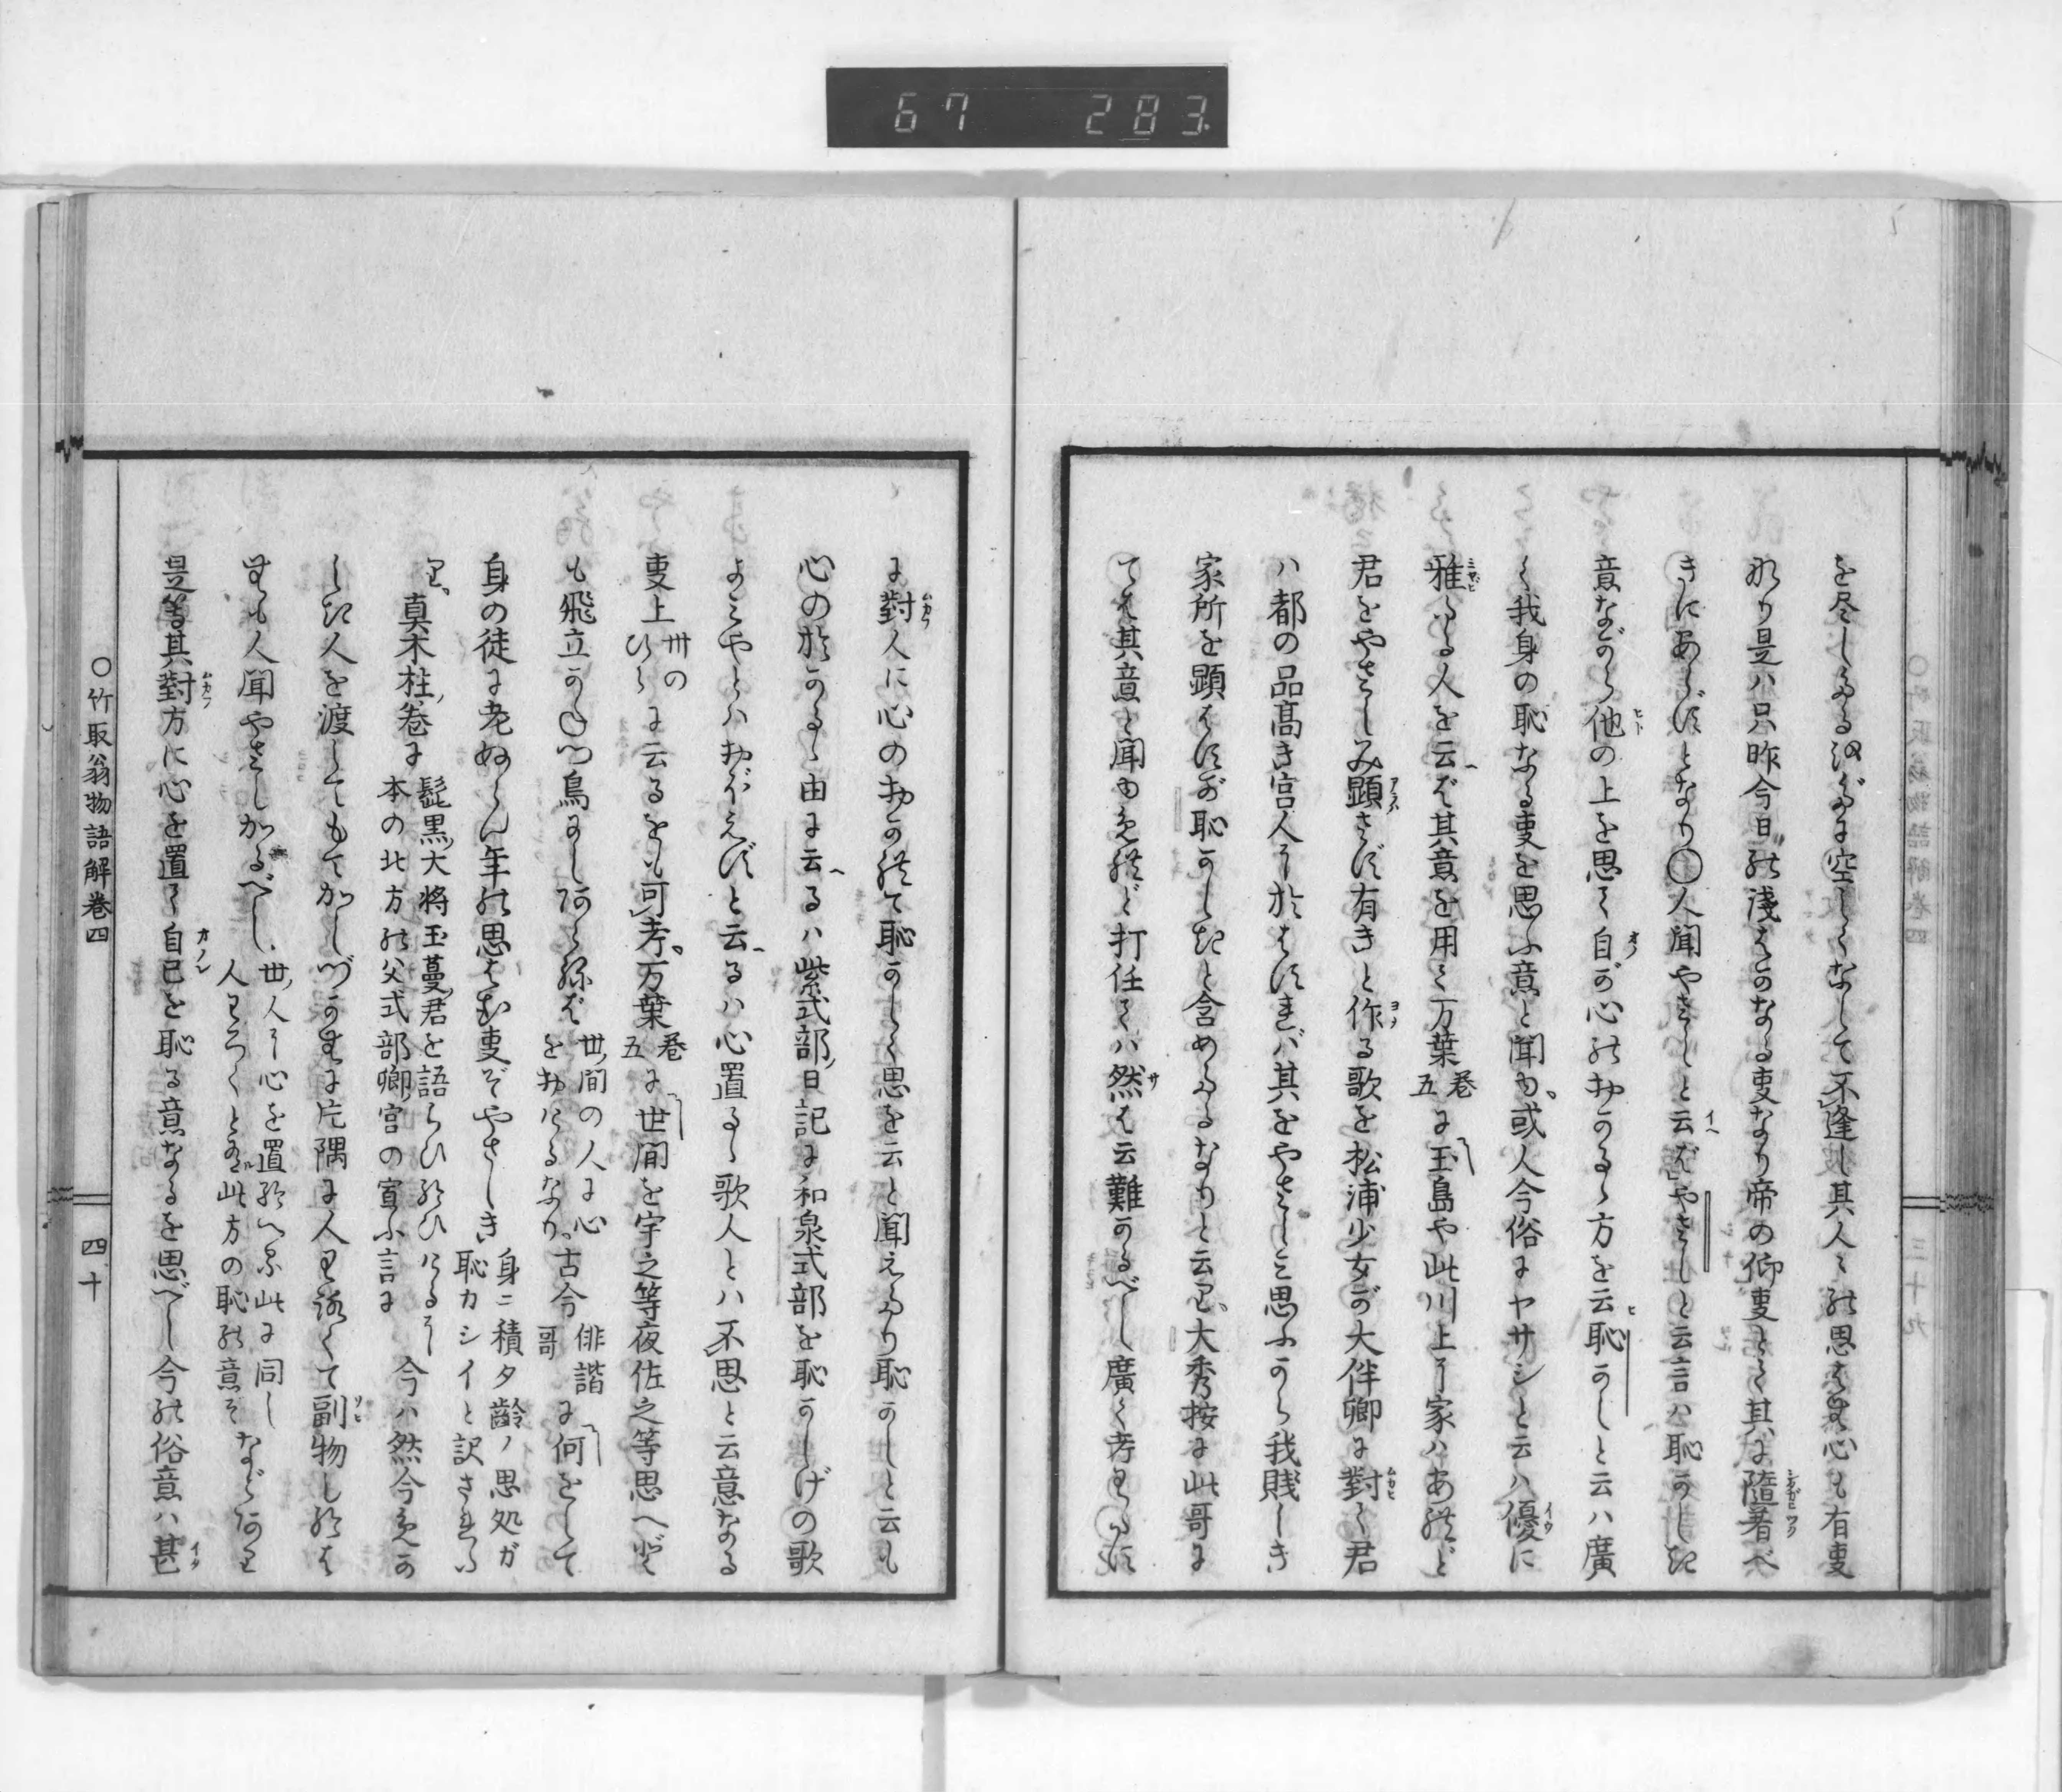 67 283
を尽しゝる汲ばゝに空しくなして不逢し其人々の思はむ心も有事
なり是ハ只昨今日の浅はかなる事なり帝の仰事とて其に隨着べ
きにあらずとなり○人聞やさしと云ばやさしと云言ハ恥かしき
意ながら他の上を思て自が心のおかるゝ方を云恥かしと云ハ廣
く我身の恥なる事を思ふ意と聞ゆ或人今俗にヤサシと云ハ優に
雅なる人を云へば其意を用て万葉巻五に玉島や此川上に家ハあれど
君をやさしみ顕さず有きと作る歌を松浦少女が大伴卿に對て君
ハ都の品高き宮人におはすれバ其をやさしミ思ふから我賤しき
家所を顕はすが恥かしきと含めたるなりと云り大秀按に此哥に
てハ其意と聞ゆめれど打任てハ然は云難かるべし廣く考わたすに
に對人に心のおかれて恥かしく思を云と聞えたり恥かしと云も
心のおかるゝ由に云るハ紫式部日記に和泉式部を恥かしげの歌
よミやとハおぼえずと云るハ心置るゝ歌人とハ不思と云意なる
事上卅のひらに云るをも可考万葉巻五に世間を宇之等夜佐之等思へども
も飛立かねつ鳥にしあらねば世間の人に心をおけるなり古今俳諧哥に何をして
身の徒に老ぬらん年の思はむ事ぞやさしき身ニ積タ齢ノ思処ガ恥カシイと訳されつ
り真木柱巻に髭黒大将玉蔓君を語らひ給ひけるに本の北方の父式部卿宮の宣ふ言に今ハ然今めか
しき人を渡してもてかしづかむに片隅に人わろくて副物し給は
むも人聞やさしかるべし世人に心を置給へる此に同じなどあり人わろくとハ此方の恥の意ぞ
是等其對方に心を置て自己を恥る意なるを思べし今の俗意ハ甚
○竹取翁物語解巻四
四十